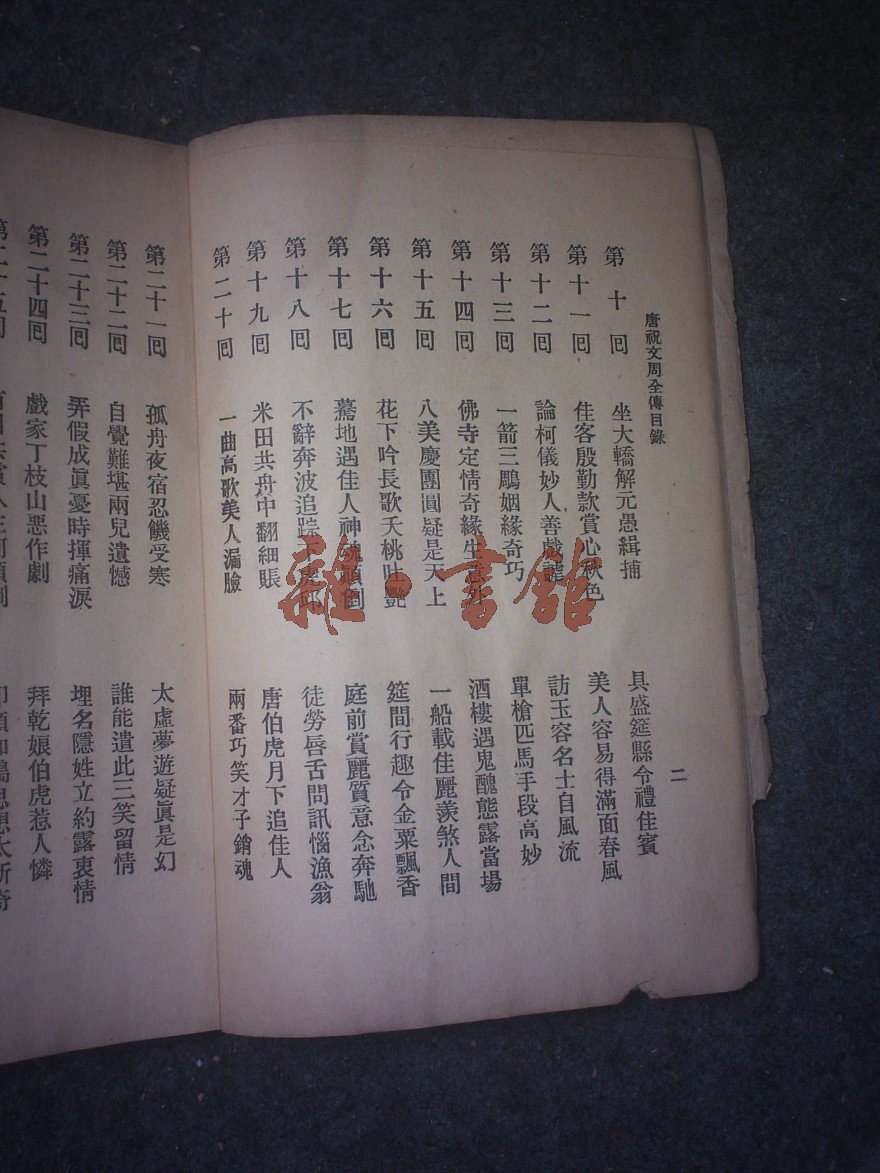 唐祝文周全傳目錄
二
第十回 坐大轎解元愚緝捕 具盛筵縣令禮佳賓
第十一回 佳客殷勤款賞心秋色 美人容易得滿面春風
第十二回 論柯儀妙人善戲謔 訪玉容名士自風流
第十三回 一箭三鵰姻緣奇巧 單槍匹馬手段高妙
第十四回 佛寺定情奇緣生意外 酒樓遇鬼醜態露當場
第十五回 八美慶團圓疑是天上 一船載佳麗羨煞人間
第十六回 花下吟長歌夭桃吐艷 筵間行趣令金粟飄香
第十七回 驀地遇佳人神魂顚倒 庭前賞麗質意念奔馳
第十八回 不辭奔波追踪下虎邱 徒勞唇舌問訊惱漁翁
第十九回 米田共舟中翻細賬 唐伯虎月下追佳人
第二十回 一曲高歌美人漏臉 兩番巧笑才子銷魂
第二十一回 孤舟夜宿忍饑受寒 太虛夢遊疑眞是幻
第二十二回 自覺難堪兩兒遺憾 誰能遣此三笑留情
第二十三回 弄假成眞憂時揮痛淚 埋名隱姓立約露衷情
第二十四回 戲家丁枝山惡作劇 拜乾娘伯虎惹人憐
第二十五回
雜·書館